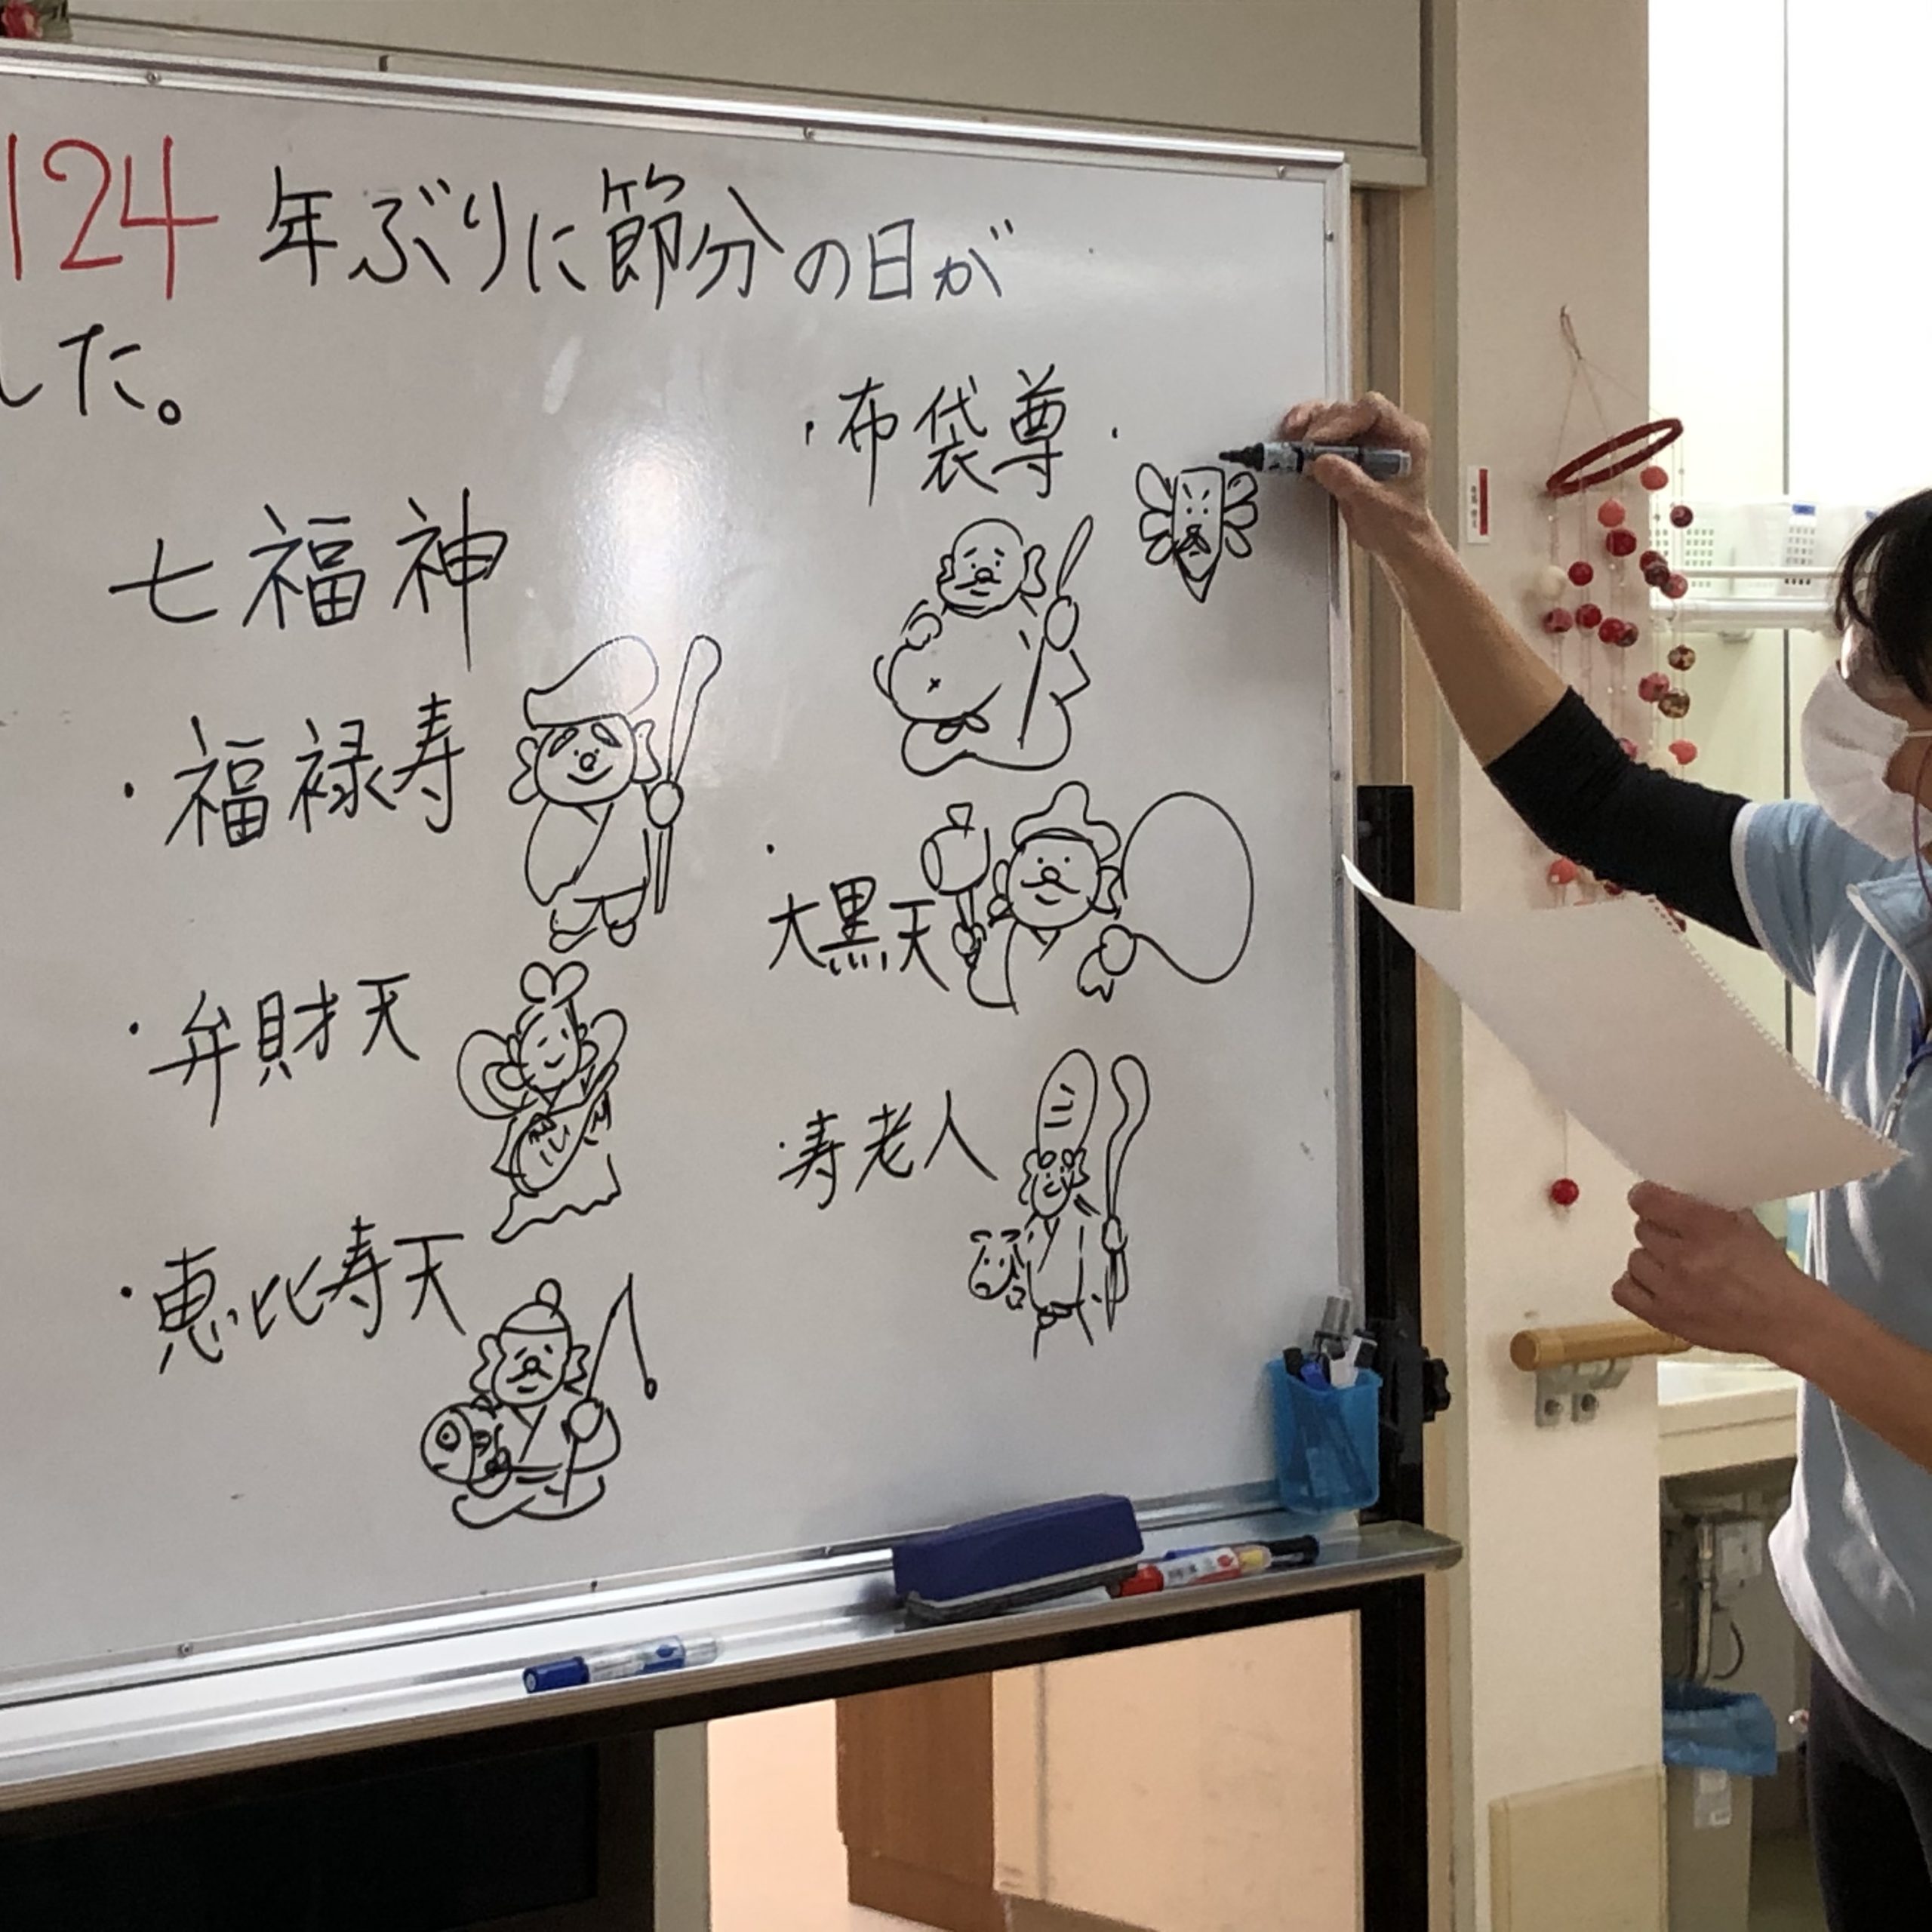 124年ぶりに節分の日が
した。
七福神
・福禄寿
・弁財天
・恵比寿天
・布袋尊・
・大黒天
・寿老人